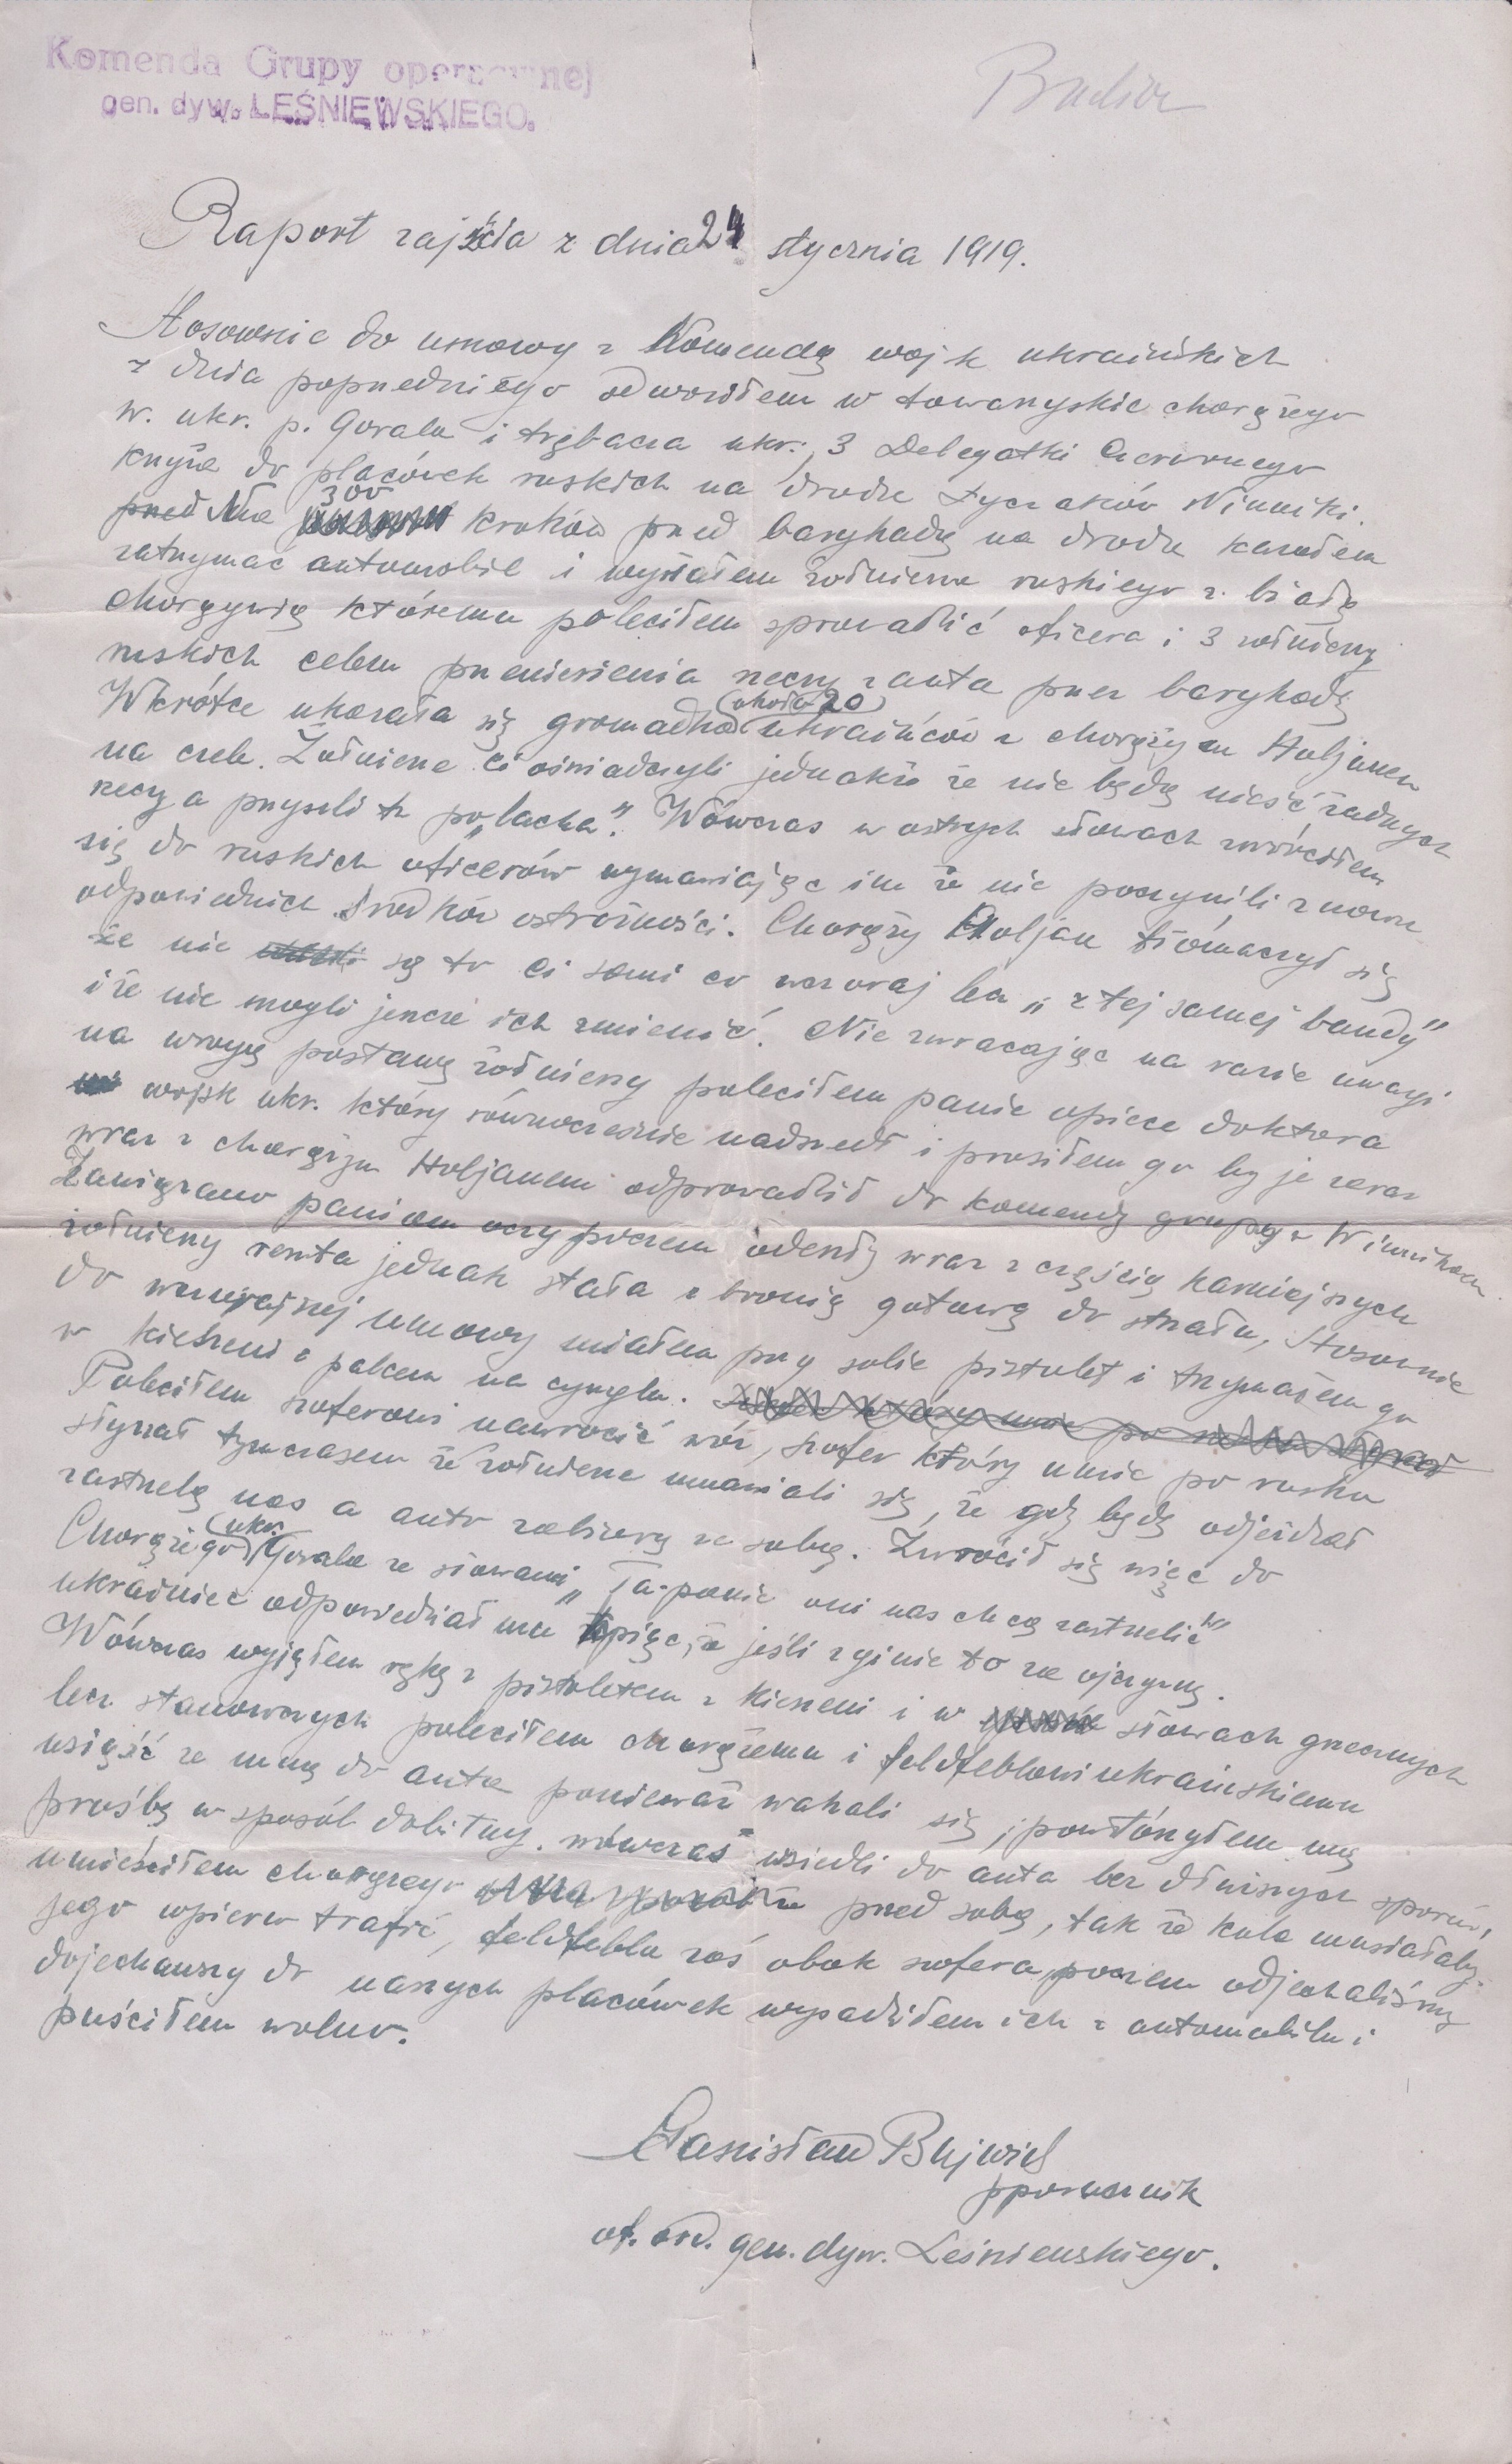 Komenda Grupy operacyjnej
gen. dyw. LEŚNIEWSKIEGO.
Raport zajścia z dnia 24 stycznia 1919.
Stosownie do umowy z Komendą wojsk ukraińskich
z dnia poprzedniego odwoziłem w towarzyskie chorążego
w. ukr. p. Gorala i trębacza ukr., 3 Delegatki Czerwonego
Krzyża do placówek ruskich na drodze Łyczaków Winniki.
przed Na 300 kroków przed barykadą na drodze kazałem
zatrzymać automobil i wysłałem żołnierza ruskiego z białą
chorągwią któremu poleciłem sprowadzić oficera i 3 żołnierzy
ruskich celem przeniesienia rzeczy z auta przez barykadę
Wkrótce ukazała się gromadka (około 20) ukraińców z chorążym Holjanem
na czele. Żołnierze ci oświadczyli jednakże że nie będą nieść żadnych
rzeczy a przyszli tu po „lacha". Wówczas w ostrych słowach zwróciłem
się do ruskich oficerów wymawiając im że nie poczynili znowu
odpowiednich środków ostrożności. Chorąży Holjan tłómaczył się
że nie są to ci sami co wczoraj lecz „z tej samej bandy"
i że nie mogli jeszcze ich zmienić. Nie zwracając na razie uwagi
na wrogą postawę żołnierzy poleciłem panie opiece doktora
wojsk ukr. który równocześnie nadszedł i prosiłem go by je zaraz
wraz z chorążym Holjanem odprowadził do komendy grupy w Winnikach
Zawiązano paniom oczy poczem odeszły wraz z częścią karniejszych
żołnierzy reszta jednak stała z bronią gotową do strzału, Stosownie
do wczorajszej umowy miałem przy sobie pistolet i trzymałem go
w kieszeni z palcem na cynglu.
Poleciłem szoferowi nawrócić wóz, szofer który umie po rusku
słyszał tymczasem że żołnierze umawiali się, że gdy będę odjeżdżał
zastrzelą nas a auto zabierą ze sobą. Zwrócił się więc do
Chorążego (ukr.) Gorala ze słowami „Ta-panie oni nas chcą zastrzelić"
ukrainiec odpowiedział mu kpiąc, że jeśli zginie to za ojczyznę.
Wówczas wyjąłem rękę z pistoletem z kieszeni i w słowach grzecznych
lecz stanowczych poleciłem chorążemu i feldfeblowi ukraińskiemu
usiąść ze mną do auta ponieważ wahali się, powtórzyłem mą
prośbę w sposób dobitny. wówczas wsiedli do auta bez dłuższych sporów,
umieściłem chorążego przed sobą, tak że kula musiałaby
jego wpierw trafić, feldfebla zaś obok szofera, poczem odjechaliśmy
dojechawszy do naszych placówek wysadziłem ich z automobilu i
puściłem wolno.
Stanisław Bujwid
pporucznik
of. ord. gen. dyw. Leśniewskiego.